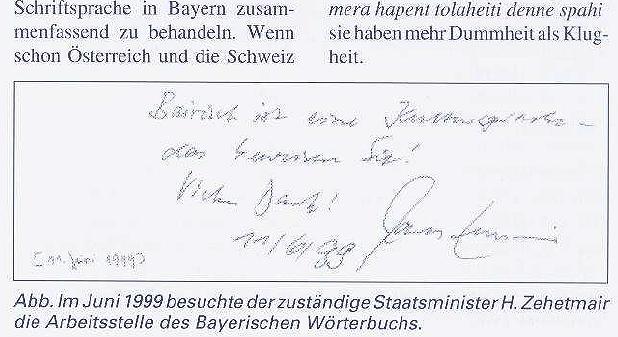 Schriftsprache in Bayern zusam-
menfassend zu behandeln. Wenn
schon Österreich und die Schweiz
mera hapent tolaheiti denne spahi
sie haben mehr Dummheit als Klug-
heit.
Bairisch ist eine Kultursprache -
das beweisen Sie!
Vielen Dank!
11/6/99
[11. Juni 1999]
Abb. Im Juni 1999 besuchte der zuständige Staatsminister H. Zehetmair
die Arbeitsstelle des Bayerischen Wörterbuchs.